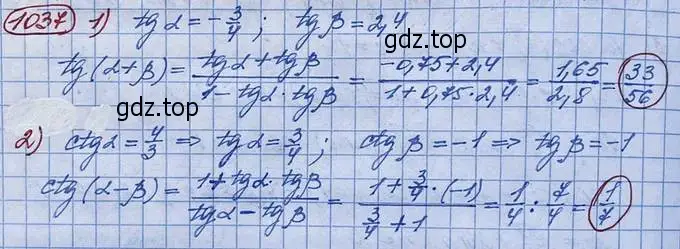 1037 1) tg α = -3/4; tg β = 2,4
gdz.top
tg(α+β) = (tgα + tgβ)/(1 - tgα · tgβ) = (-0,75 + 2,4)/(1 + 0,75 · 2,4) = 1,65/2,8 = 33/56
gdz.top
2) ctgα = 4/3 => tgα = 3/4; ctgβ = -1 => tgβ = -1
ctg(α-β) = (1 + tgα · tgβ)/(tgα - tgβ) = (1 + 3/4 · (-1))/(3/4 + 1) = 1/4 : 7/4 = 1/7
gdz.top